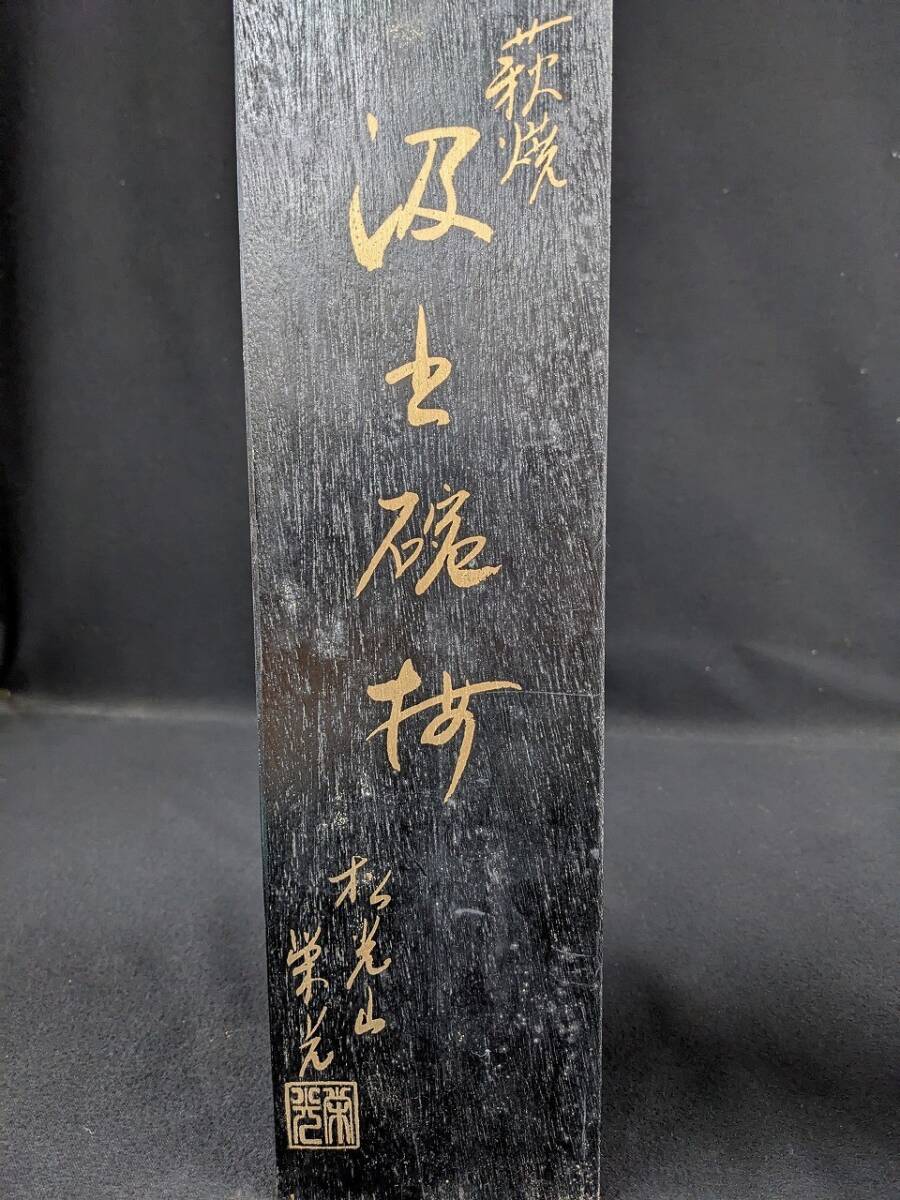 萩焼
汲出碗揃
松光山
栄光
栄光